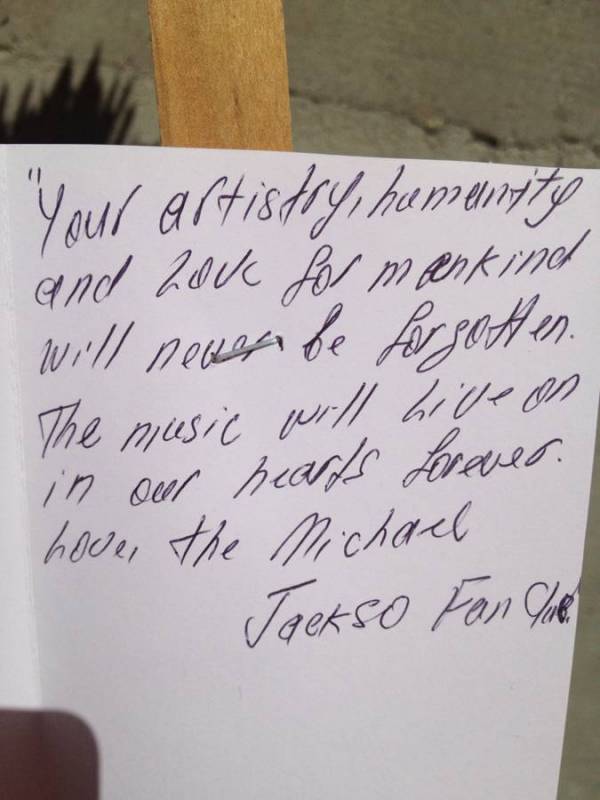 "Your artistry, humanity
and Love for mankind
will never be forgotten.
The music will Live on
in our hearts forever.
Love, the Michael
Jackso Fan Club."